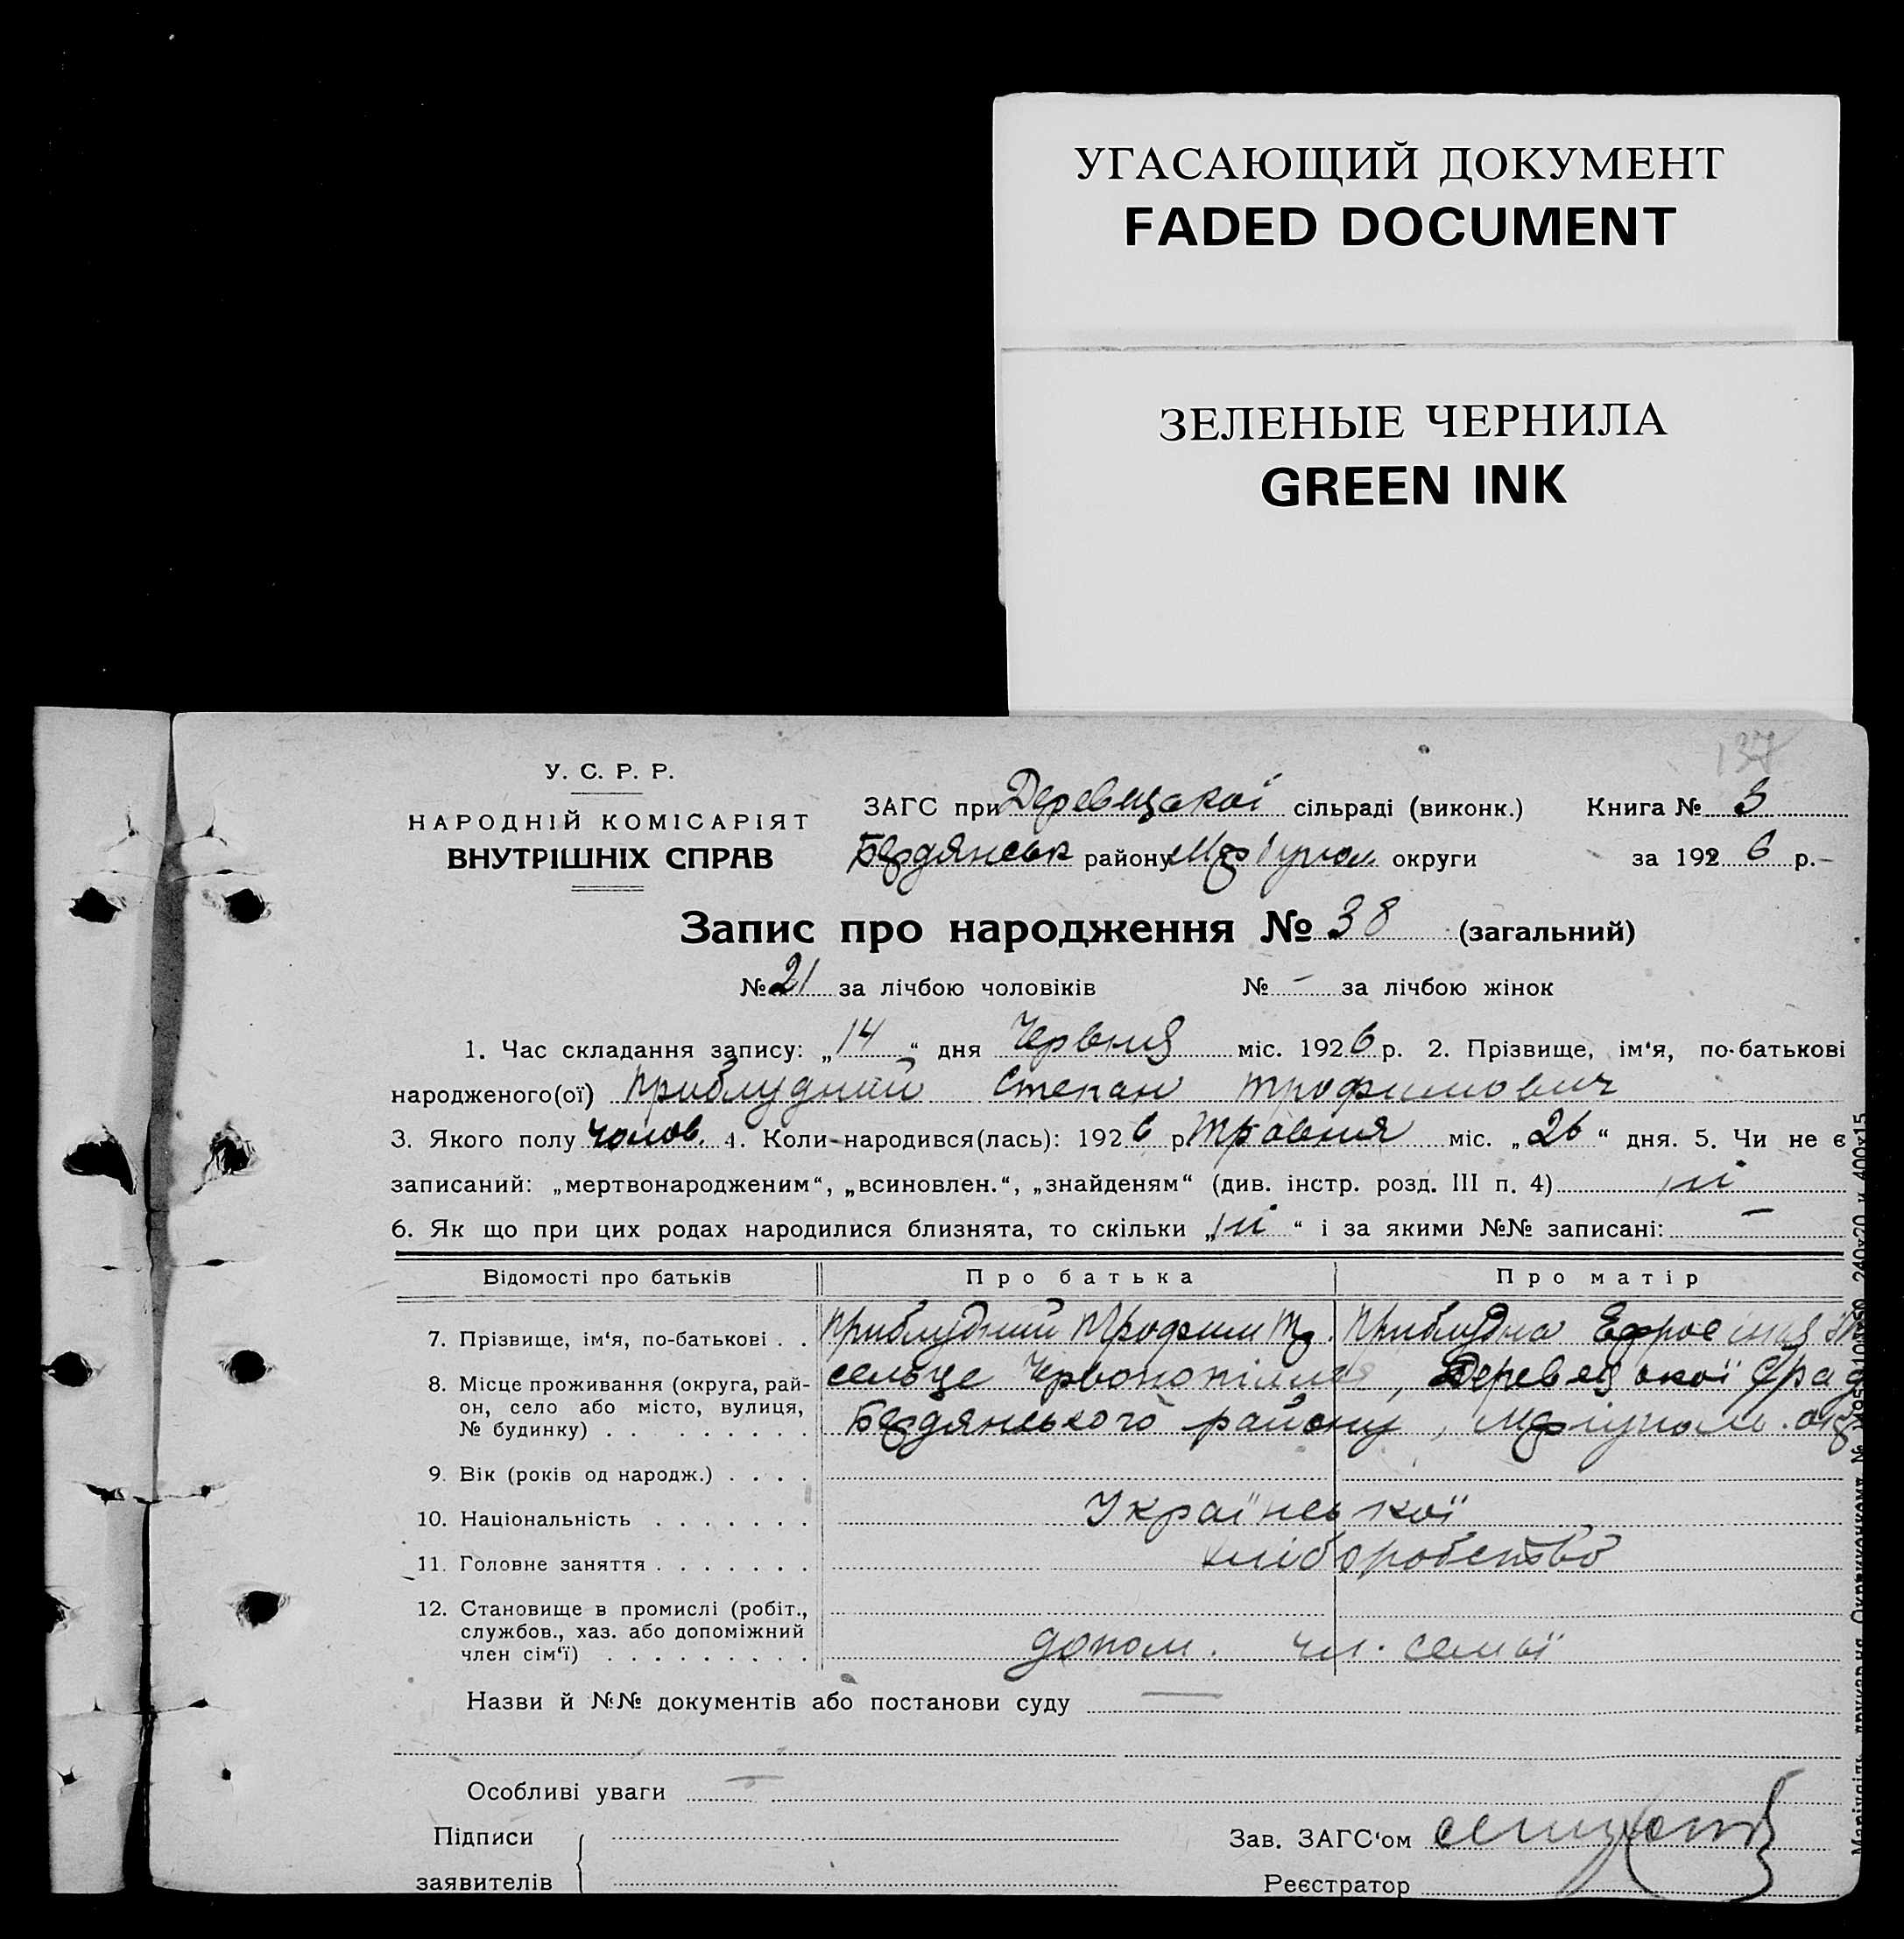 УГАСАЮЩИЙ ДОКУМЕНТ
FADED DOCUMENT
ЗЕЛЕНЫЕ ЧЕРНИЛА
GREEN INK
137
У. С. Р. Р.
НАРОДНІЙ КОМІСАРІЯТ
ВНУТРІШНІХ СПРАВ
ЗАГС при Деревецакої сільраді (виконк.) Книга № 3
Бердянськ району Маріупол округи за 192 6 р.
Запис про народження № 38 (загальний)
№ 21 за лічбою чоловіків № – за лічбою жінок
1. Час складання запису: „14“ дня Червня міс. 1926 р. 2. Прізвище, ім‘я, по-батькові
народженого(ої) Приблудний Степан Трофимович
3. Якого полу чолов. 4. Коли народився(лась): 1926 р. Травня міс. „26“ дня. 5. Чи не є
записаний: „мертвонародженим“, „всиновлен.“, „знайденям“ (див. інстр. розд. III п. 4) ні
6. Як що при цих родах народилися близнята, то скільки „ні“ і за якими №№ записані: –
Відомості про батьків Про батька Про матір
7. Прізвище, ім‘я, по-батькові . . Приблудний Трофим Приблудна Ефросіния
8. Місце проживання (округа, рай-
он, село або місто, вулиця,
№ будинку) . . . . . . . . .
сельце Червонопілля, Срад
Бердянського району, Маріуполь. окр
9. Вік (років од народж.) . . . .
10. Національність . . . . . . . Української
11. Головне заняття . . . . . . . хліборобство
12. Становище в промислі (робіт.,
службов., хаз. або допоміжний
член сім‘ї) . . . . . . . . .
допом. чл. семьї
Назви й №№ документів або постанови суду —
Особливі уваги —
Підписи
заявителів
Зав. ЗАГС‘ом
Реєстратор